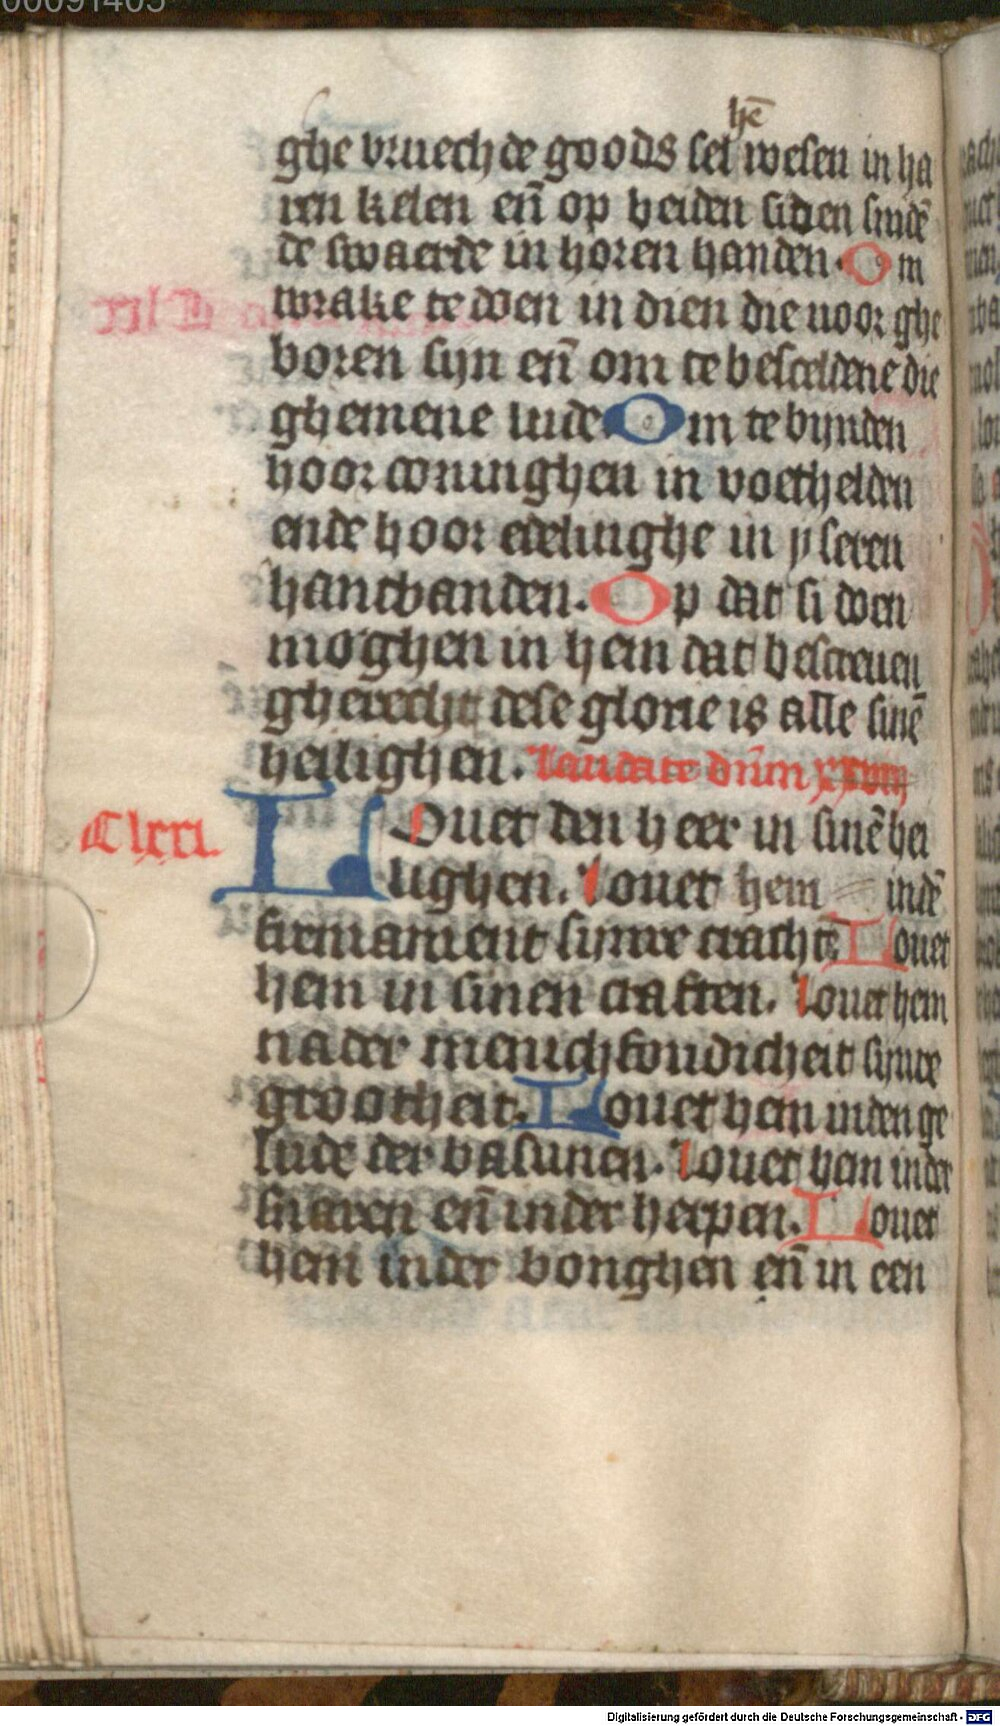 00091405
hē
ghe vruechde goods sel wesen in ha
ren kelen en̄ op beiden siden sindē
de swaerde in horen handen. Om
wrake te doen in dien die uoor ghe
boren sijn en̄ om te besceldene die
ghemene lude Om te bynden
hoor coninghen in voethelden
ende hoor edelinghe in yseren
hantbanden. Op dat si doen
moghen in hem dat bescreuen
gherecht dese glorie is alle sinē
heilighen. Laudate dn̄m
Clxxi. Louet den heer in sinē hei
lighen. Louet hem indē
firmament sijnre cracht Louet
hem in sinen craften. Louet hem
nader menichfoudicheit sijnre
grootheit. Louet hem inden ge
lude der basunen. Louet hem inder
snaren en̄ inder herpen. Louet
hem inder bonghen en̄ in een
Digitalisierung gefördert durch die Deutsche Forschungsgemeinschaft - DFG